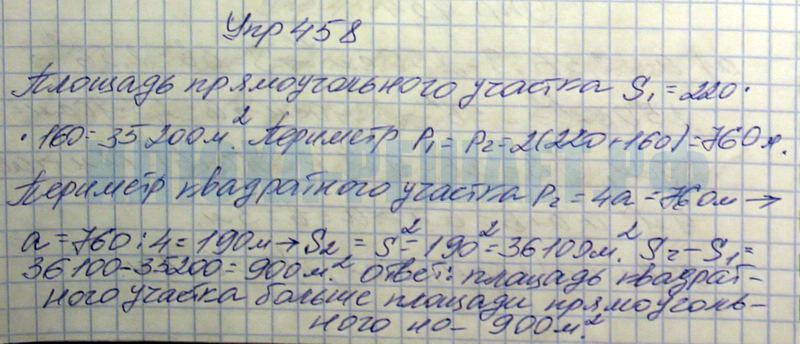 Упр 458
Площадь прямоугольного участка S₁ = 220 ·
· 160 = 35200 м.² Периметр P₁ = P₂ = 2(220 + 160) = 760 м.
Периметр квадратного участка P₂ = 4a = 760 м →
a = 760 : 4 = 190 м → S₂ = S² = 190² = 36100 м.² S₂ - S₁ =
36100 - 35200 = 900 м.² Ответ: площадь квадрат-
ного участка больше площади прямоуголь-
ного на - 900 м.²